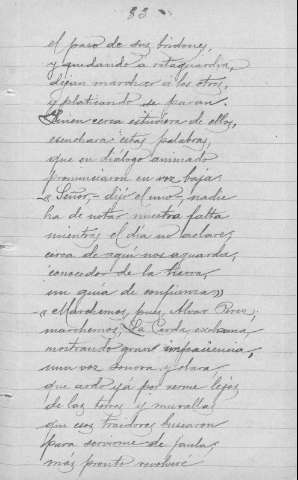 83
el paso de sus bridones,
y quedando á retaguardia,
dejan marchar á los otros,
y platicando se paran.
Quien cerca estuviera de ellos,
escuchara estas palabras,
que en diálogo animado
pronunciaron en voz baja:
«Señor,- dijo el uno,- nadie
ha de notar nuestra falta
mientras el día no aclare;
cerca de aquí nos aguarda,
conocedor de la tierra,
un guía de confianza»
«Marchemos, pues, Alvar Perez;
marchemos, La Cerda exclama,
mostrando grant impaciencia,
una voz sonora y clara
que ardo yá por verme lejos
de las torres y murallas
que esos traidores buscaron
para servirme de jaula;
más pronto revolveré